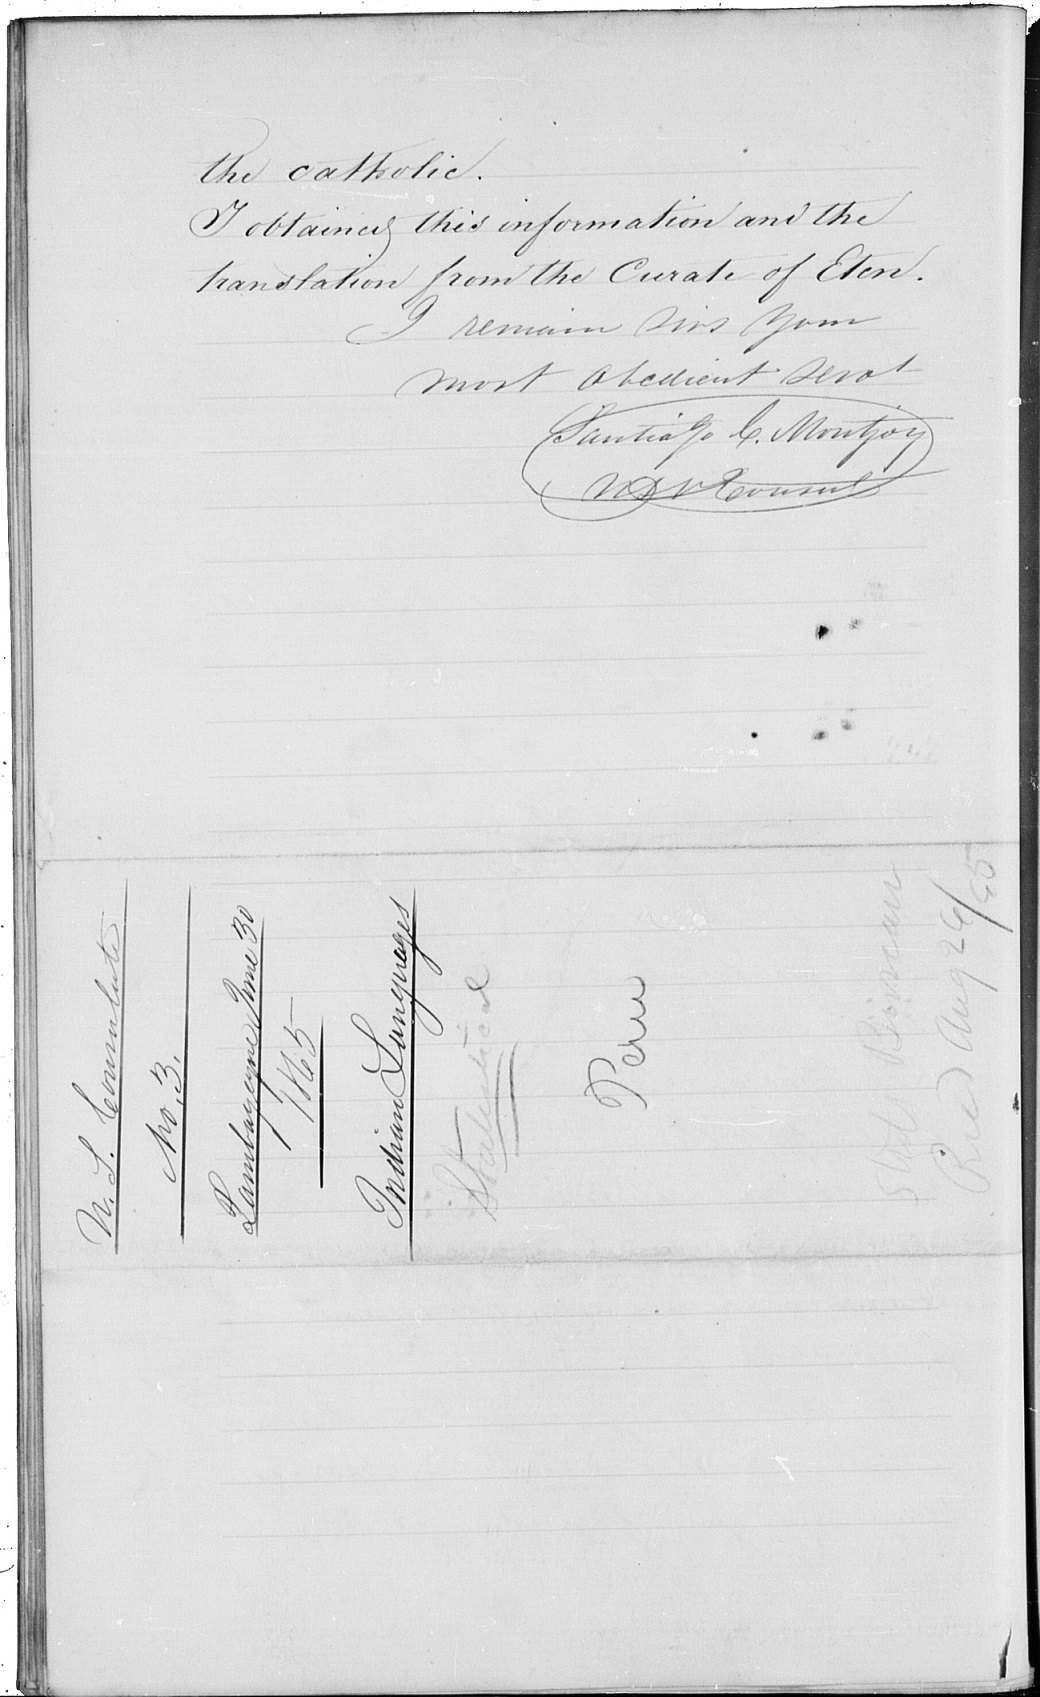 the catholic.
I obtained this information and the
translation from the Curate of Eten.
I remain sirs your
most obedient servt
Santiago C. Montjoy
U S V Consul
U. S. Consulate
No. 3.
Lambayeque June 30
1865
Indian Languages
Statistical
Peru
Recd Aug 26/65